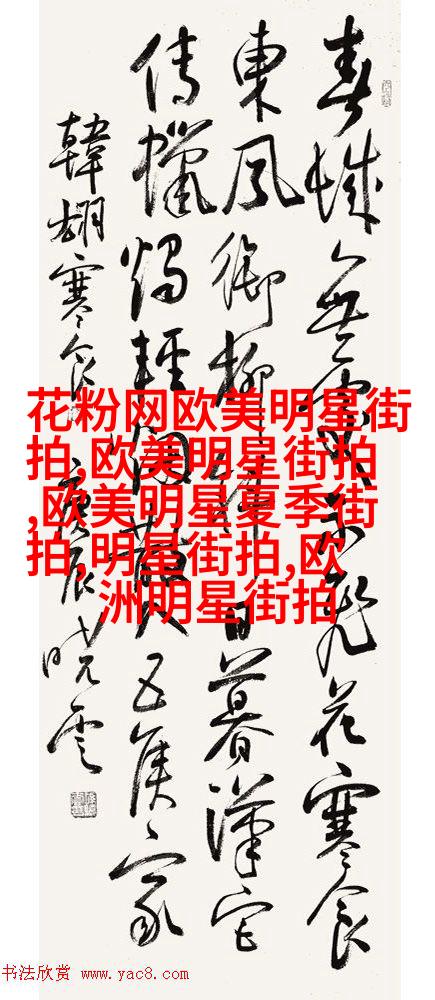 春城無處不飛花寒食
東風御柳斜日暮漢宮
傳蠟燭輕烟散入五侯家
韓翃寒食 庚辰 曉雲
花粉网欧美明星街
拍,欧美明星街拍
,欧美明星夏季街
拍,明星街拍,欧
洲明星街拍
书法欣赏 www.yac8.com